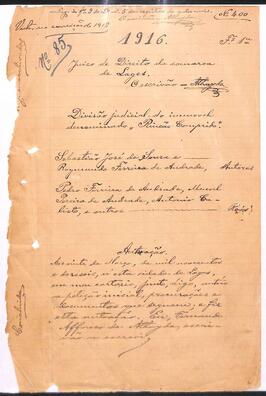 Nº 400
Nº 85
1916.
Fª 1
Juizo de Direito da comarca
de Lages.
O escrivão Athayde
Divisão judicial do immovel
denominado "Rincão Comprido".
Sebastião José de Souza e
Raymundo Ferreira de Andrade, Autores
Pedro Ferreira de Andrade, Manoel
Pereira de Andrade, Antonio Ca-
listo, e outros Réos
Autuação.
de Março, de mil novecentos
e deseseis, n'esta cidade de Lages,
em meu cartorio, junto, digo, autuo
a petição inicial, procurações e
documentos que seguem, e fiz
esta autuação. Eu, Fernando
Affonso de Athayde, escri-
vão os escrevi.